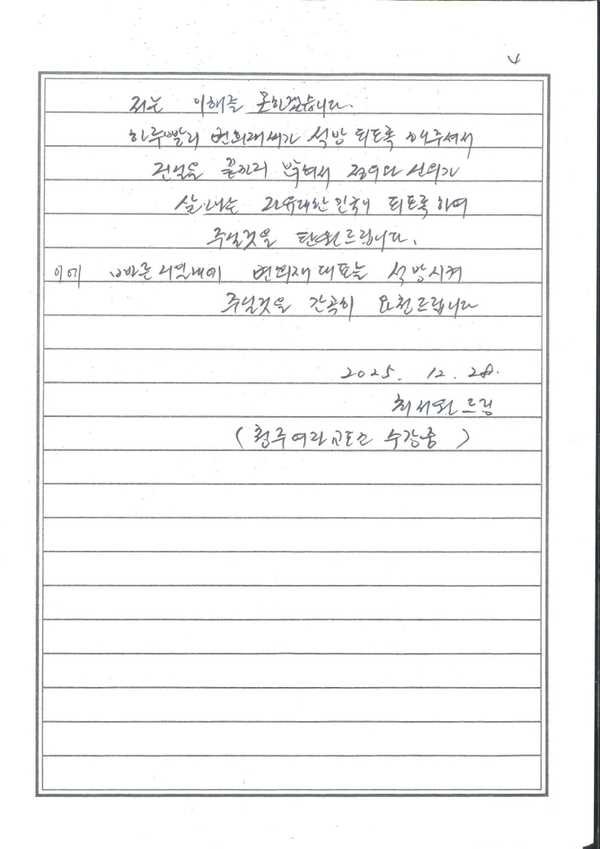 4
저는 이해를 못하겠습니다.
하루빨리 변희재씨가 석방 되도록 해주셔서
진실을 끝까지 밝혀서 정의와
살 있는 자유대한민국이 되도록 하여
주실것을 탄원드립니다.
이에 빠른 시일내에 변희재대표를 석방시켜
주실것을 간곡히 요청드립니다
2025. 12. 28.
최서원 드림
(청주여자교도소 수감중)